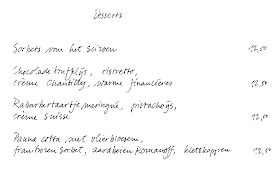 Desserts
Sorbets van het seizoen 12,50
Chocolade truffelijs, ristretto,
crème Chantilly, warme financières 12,50
Rabarbertaartje meringue, pistacheijs,
crème suisse 12,50
Panna cotta met vlierbloesem,
frambozen sorbet, aardbeien Romanoff, kletskoppen 12,50